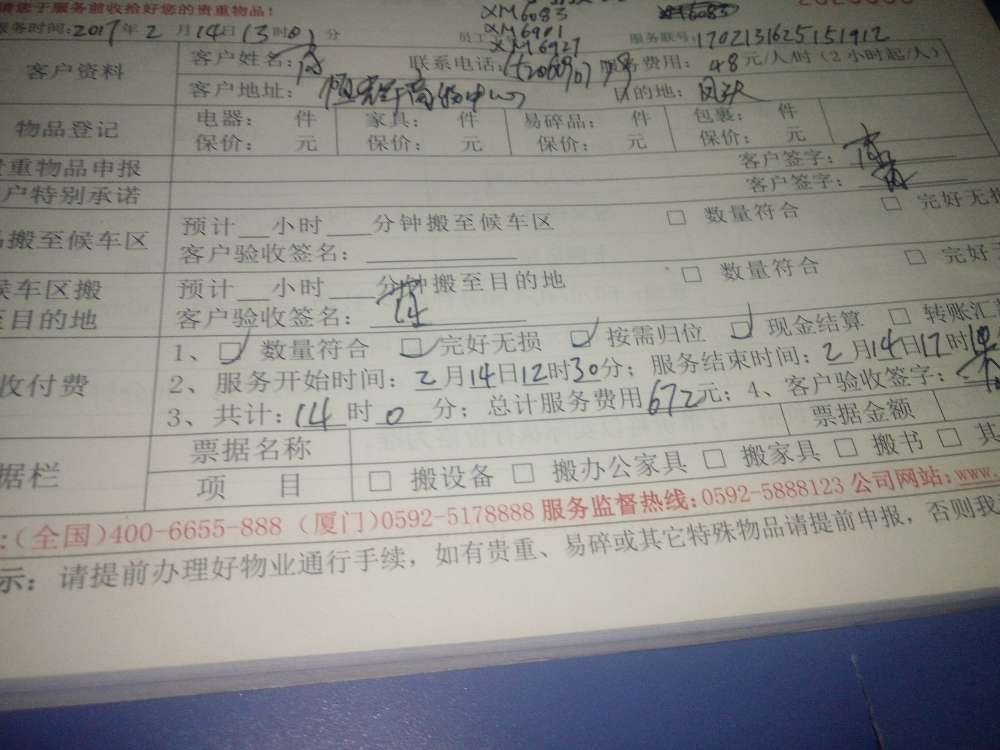 请您于服务前收给好您的贵重物品!
XM6083
服务时间:2017年2月14日13时01分 员工 XM6901 服务联号:1702131625151912
XM6927
客户资料 客户姓名: 联系电话: 费用:48元/人/时(2小时起/人)
客户地址: 商物中心 目的地:
物品登记 电器: 件 家具: 件 易碎品: 件 包裹: 件
保价: 元 保价: 元 保价: 元 保价: 元
贵重物品申报 客户签字:
户特别承诺 客户签字:
搬至候车区 预计__小时___分钟搬至候车区 □ 数量符合 □ 完好无损
客户验收签名:
候车区搬 预计__小时___分钟搬至目的地 □ 数量符合 □ 完好
至目的地 客户验收签名:
1、☑ 数量符合 ☑ 完好无损 ☑ 按需归位 ☑ 现金结算 □ 转账汇
收付费 2、服务开始时间:2月14日12时30分;服务结束时间:2月14日17时10
3、共计:14时0分;总计服务费用672元;4、客户验收签字:
据栏 票据名称 票据金额
项 目 □ 搬设备 □ 搬办公家具 □ 搬家具 □ 搬书 □ 其
:(全国)400-6655-888 (厦门)0592-5178888 服务监督热线:0592-5888123 公司网站:www.
示:请提前办理好物业通行手续,如有贵重、易碎或其它特殊物品请提前申报,否则我